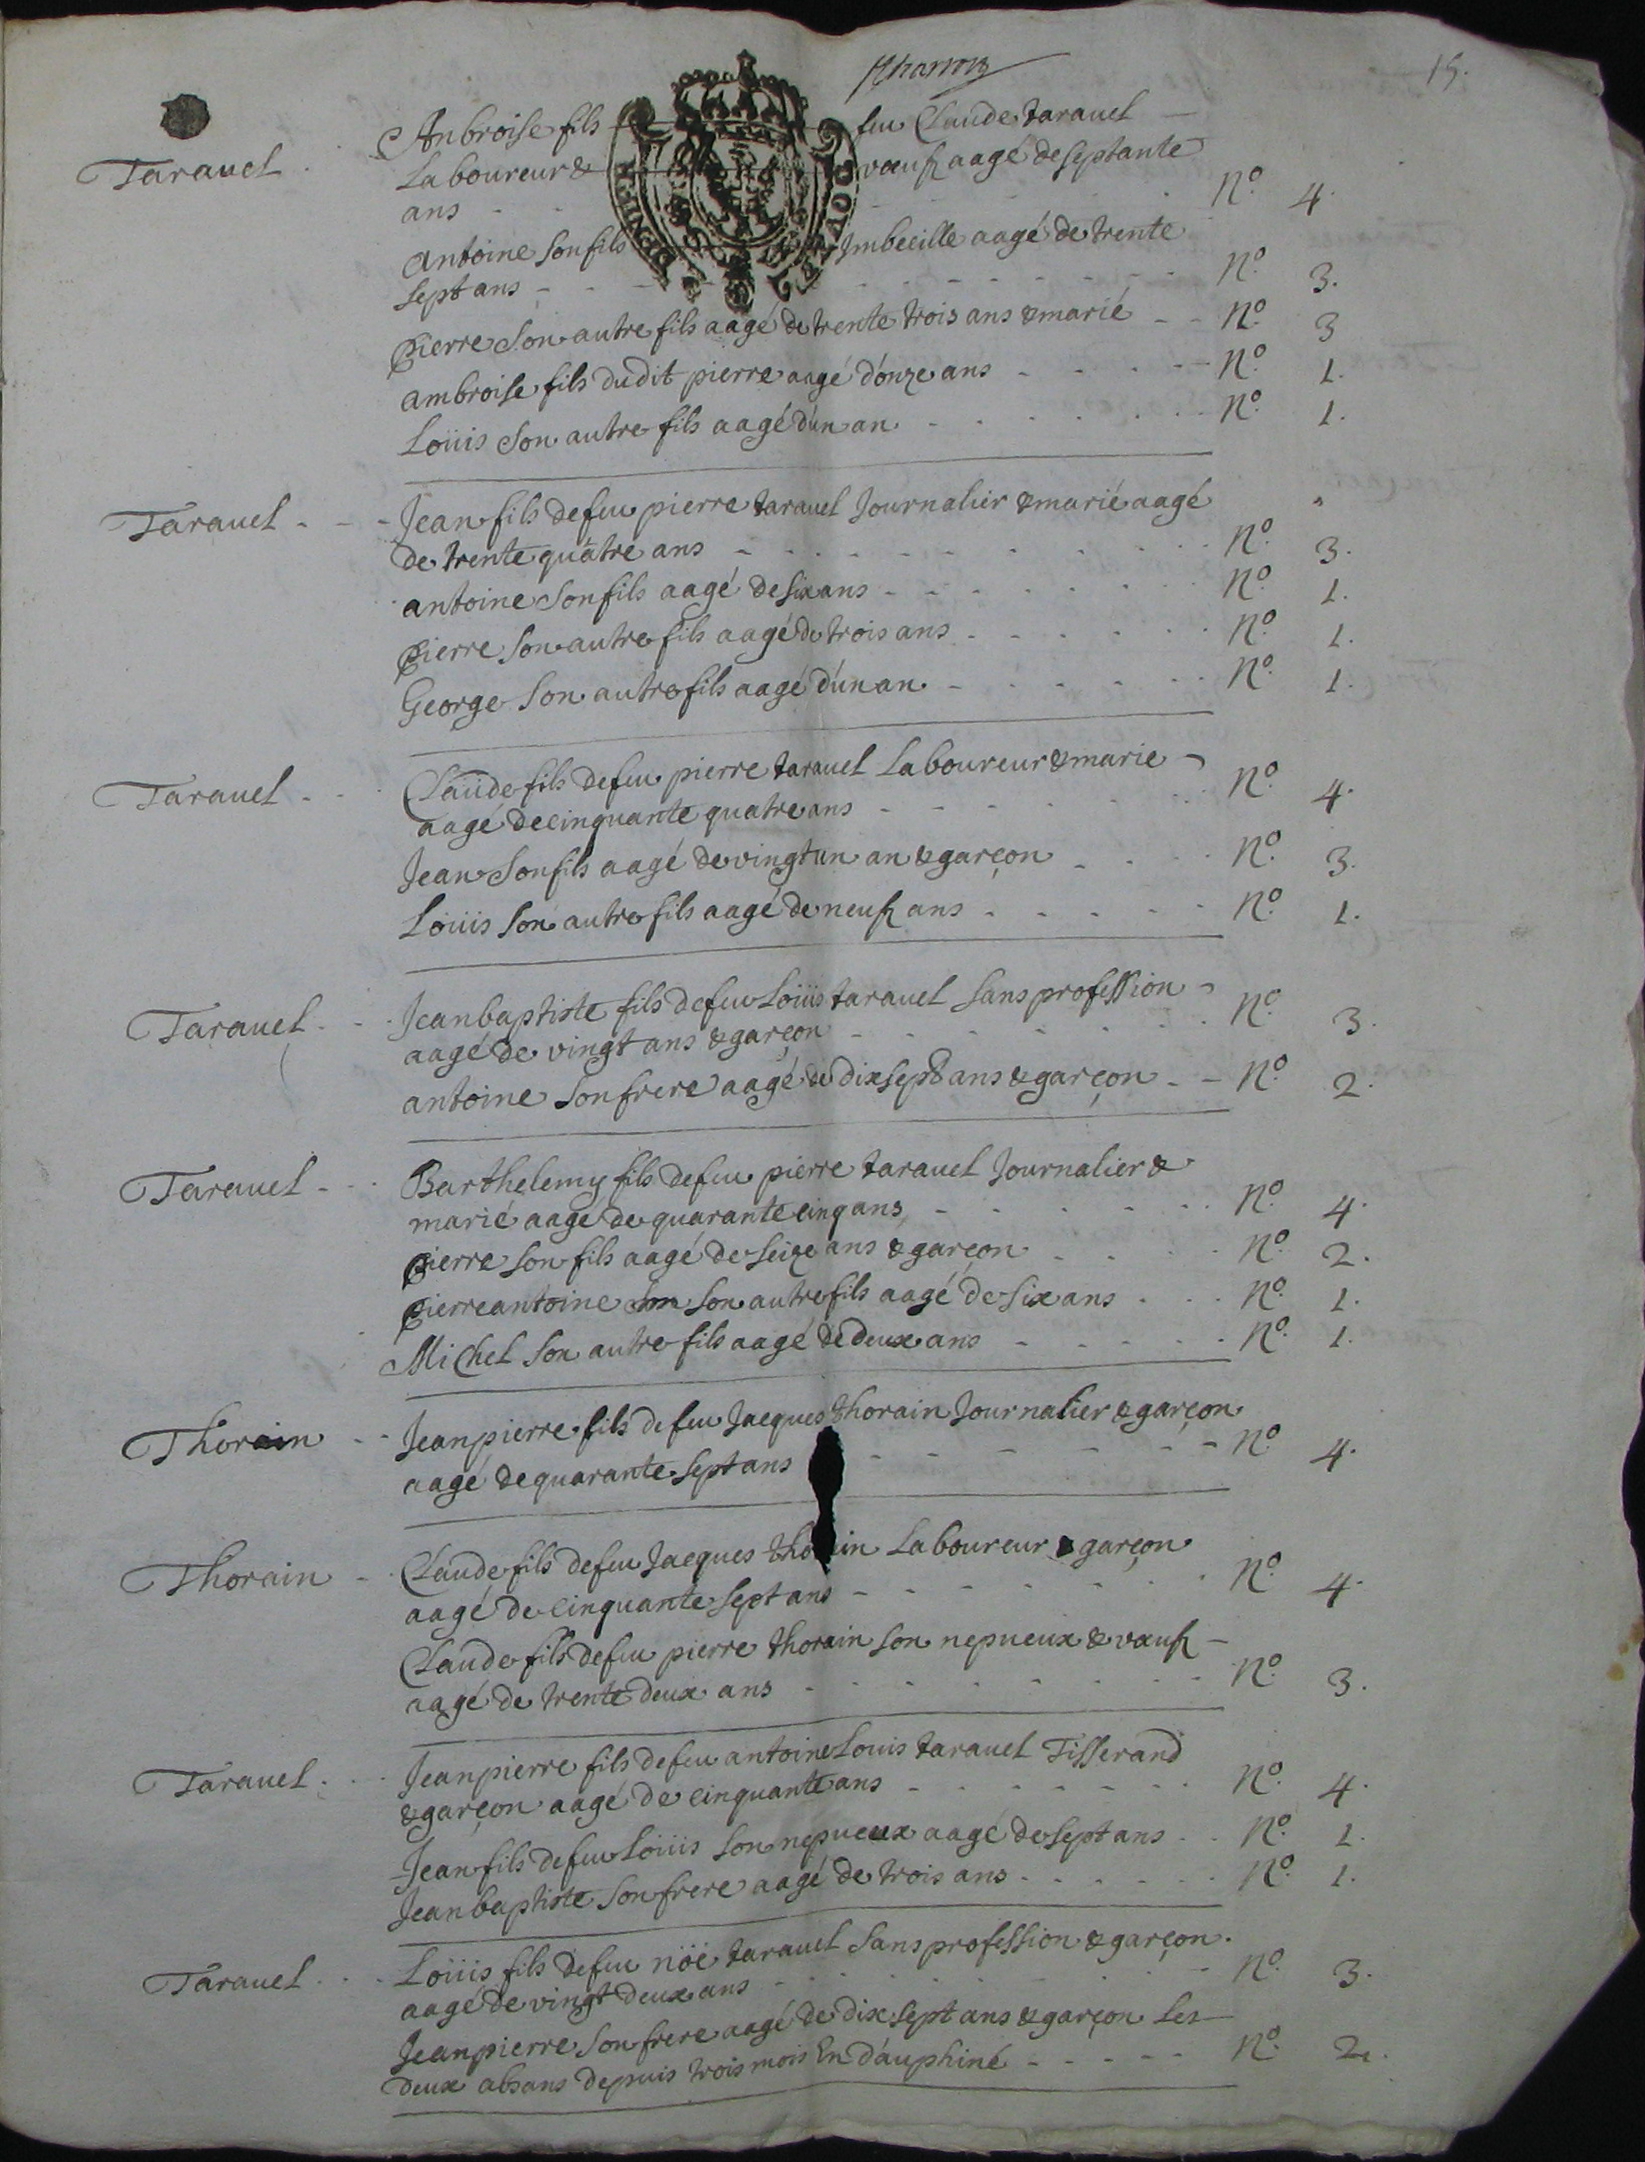 15.
Tarauel . Anbroise fils feu Claude tarauel
Laboureur & vœuf aagé de septante
ans Nº. 4.
antoine son fils Imbecille aagé de trente
sept ans Nº. 3.
pierre son autre fils aagé de trente trois ans & marié Nº. 3
ambroise fils dudit pierre aagé d'onze ans Nº. 1.
Loüis son autre fils aagé d'un an Nº. 1.
Tarauel Jean fils de feu pierre tarauel Journalier & marié aagé
de trente quatre ans Nº. 3.
antoine son fils aagé de six ans Nº. 1.
pierre son autre fils aagé de trois ans Nº. 1.
George son autre fils aagé d'un an Nº. 1.
Tarauel Claude fils de feu pierre tarauel Laboureur & marie
aagé de cinquante quatre ans Nº. 4.
Jean son fils aagé de vingt un an & garçon Nº. 3.
Loüis son autre fils aagé de neuf ans Nº. 1.
Tarauel Jeanbaptiste fils de feu Loüis tarauel sans profession
aagé de vingt ans & garçon Nº. 3.
antoine son frere aagé de dix sept ans & garçon Nº. 2.
Tarauel Barthelemy fils de feu pierre tarauel Journalier &
marié aagé de quarante cinq ans Nº. 4.
pierre son fils aagé de seize ans & garçon Nº. 2.
pierreantoine son autre fils aagé de six ans Nº. 1.
Michel son autre fils aagé de deux ans Nº. 1.
Thorain Jeanpierre fils de feu Jacques thorain Journalier & garçon
aagé de quarante sept ans Nº. 4.
Thorain Claude fils de feu Jacques tho in Laboureur & garçon
aagé de cinquante sept ans Nº. 4.
Claude fils de feu pierre thorain son nepueux & vœuf
aagé de trente deux ans Nº. 3.
Tarauel Jeanpierre fils de feu antoine Louis tarauel Tisserand
& garçon aagé de cinquante ans Nº. 4.
Jean fils de feu Loüis son nepueux aagé de sept ans Nº. 1.
Jeanbaptiste son frere aagé de trois ans Nº. 1.
Tarauel Loüis fils de feu nöe tarauel sans profession & garçon
aagé de vingt deux ans Nº. 3.
Jeanpierre son frere aagé de dix sept ans & garçon Les
deux absans depuis trois mois En dauphiné Nº. 2.